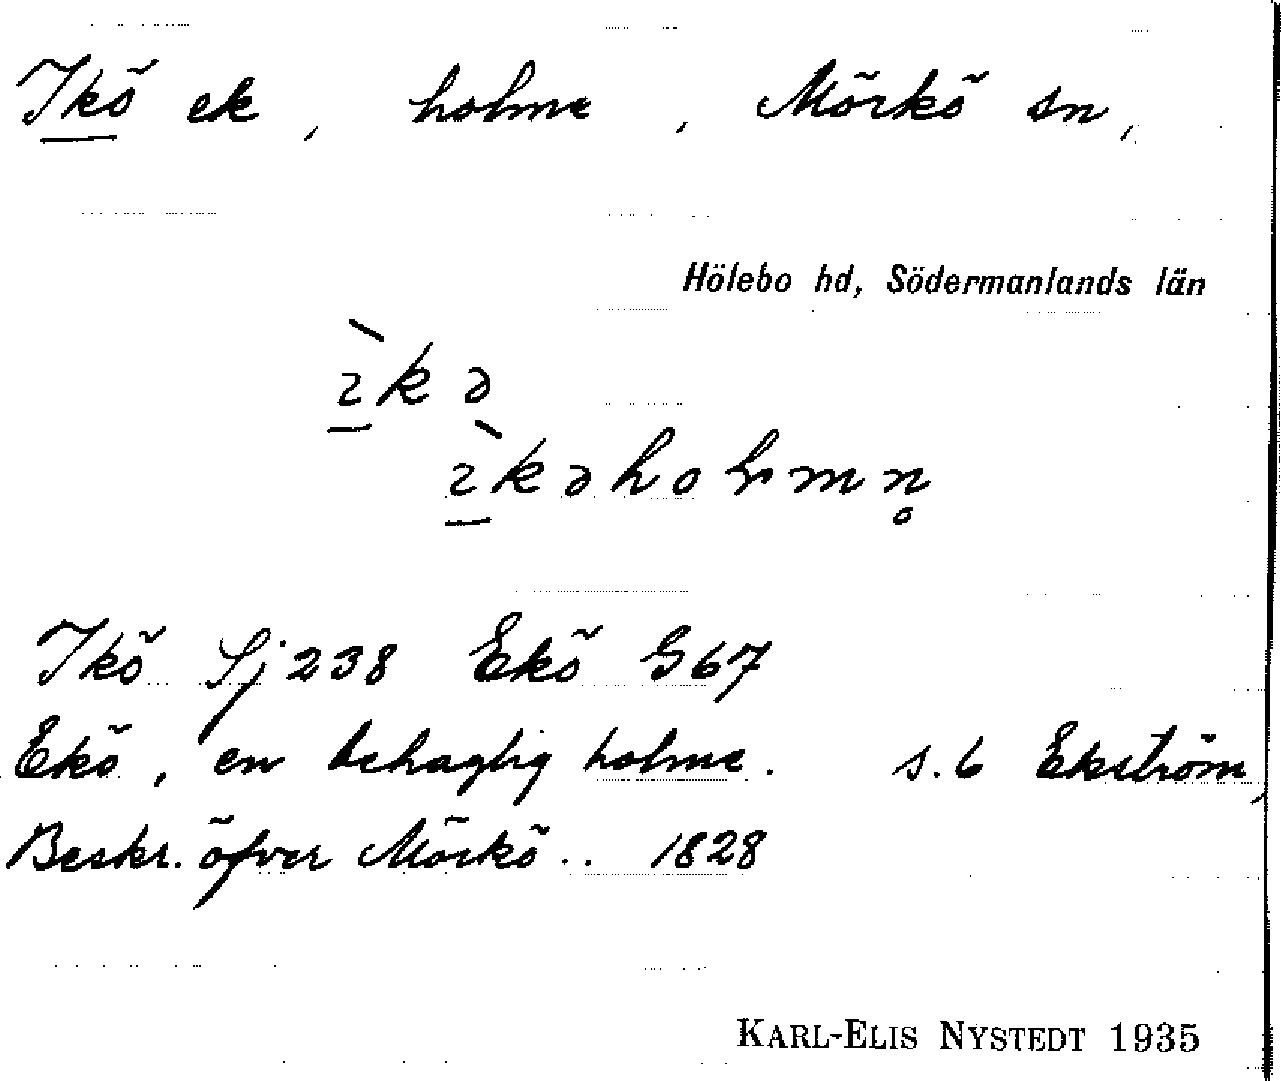 Ikö ek, holme, Mörkö sn,
Hölebo hd, Södermanlands län
ı̱̀kə
ı̱̀kəholmn̥
Ikö Sj 238 Ekö G67
Ekö, en behaglig holme. s. 6 Ekström,
Beskr. öfver Mörkö.. 1828
KARL-ELIS NYSTEDT 1935